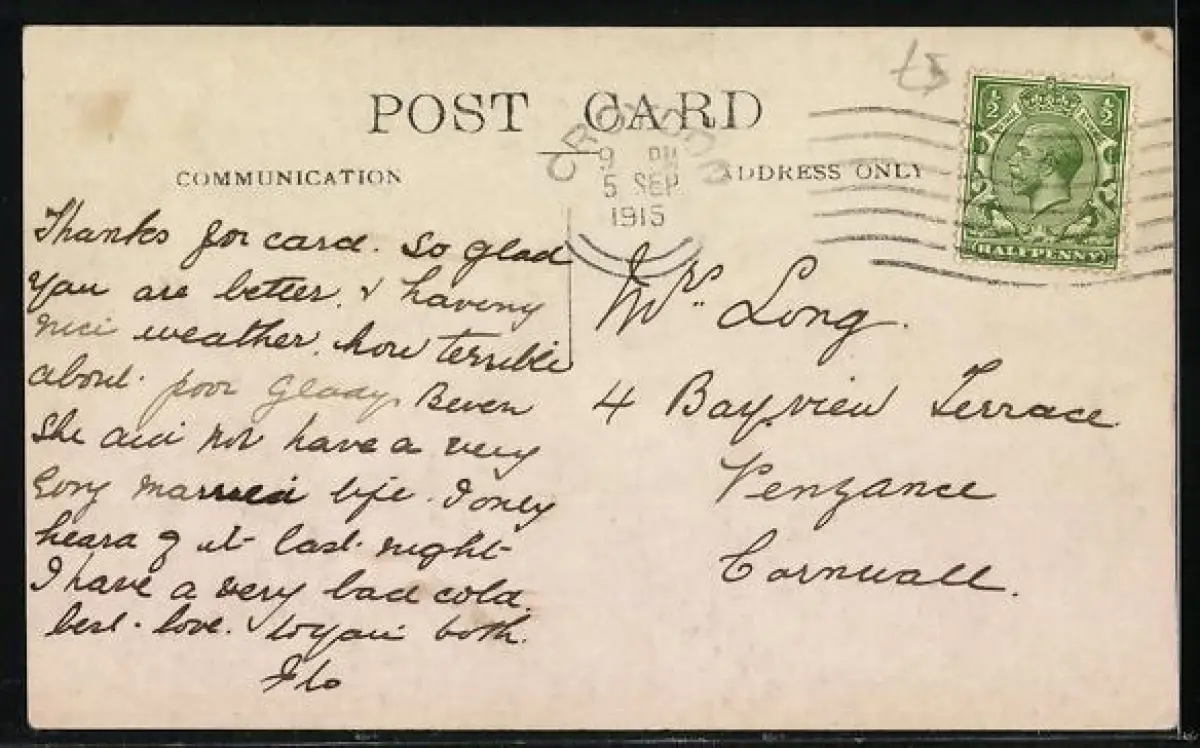 £5
POST CARD
COMMUNICATION
ADDRESS ONLY
CROYDON
9 PM
5 SEP
1915
½ ½
POSTAGE REVENUE
HALFPENNY
Thanks for card. So glad
you are better. & having
nice weather. how terrible
about. poor Gladys Beven
She did not have a very
long married life. I only
heard of it last. night
I have a very bad cold.
best. love. to you both.
Flo
Mrs Long.
4 Bayview Terrace
Penzance
Cornwall.